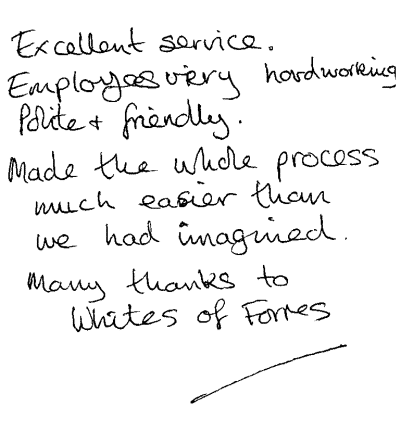 Excellent service.
Employees very hardworking
Polite + friendly.
Made the whole process
much easier than
we had imagined.
Many thanks to
Whites of Forres